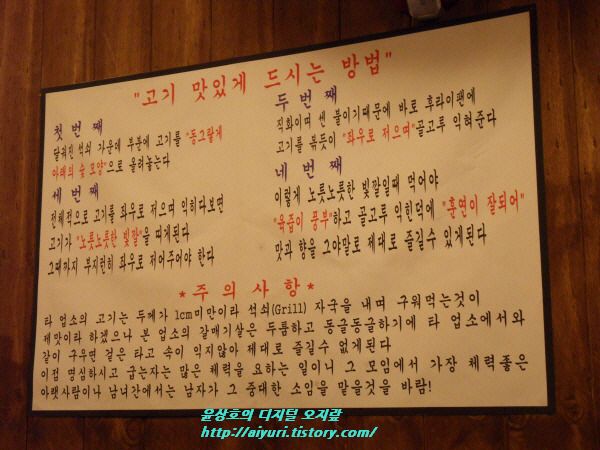 "고기 맛있게 드시는 방법"
첫 번 째
달궈진 석쇠 가운데 부분에 고기를 "동그랗게
아래의 숯 모양"으로 올려놓는다
두 번 째
직화이며 센 불이기때문에 바로 후라이팬에
고기를 볶듯이 "좌우로 저으며"골고루 익혀준다
세 번 째
전체적으로 고기를 좌우로 저으며 익히다보면
고기가 "노릇노릇한 빛깔"을 띠게된다
그때까지 부지런히 좌우로 저어주어야 한다
네 번 째
이렇게 노릇노릇한 빛깔일때 먹어야
"육즙이 풍부"하고 골고루 익힌덕에 "훈연이 잘되어"
맛과 향을 그야말로 제대로 즐길수 있게된다
*주 의 사 항*
타 업소의 고기는 두께가 1cm미만이라 석쇠(Grill) 자국을 내며 구워먹는것이
제맛이라 하겠으나 본 업소의 갈매기살은 두툼하고 동글동글하기에 타 업소에서와
같이 구우면 겉은 타고 속이 익지않아 제대로 즐길수 없게된다
이점 명심하시고 굽는자는 많은 체력을 요하는 일이니 그 모임에서 가장 체력좋은
아랫사람이나 남녀간에서는 남자가 그 중대한 소임을 맡을것을 바람!
윤상호의 디지털 오지랖
http://aiyuri.tistory.com/